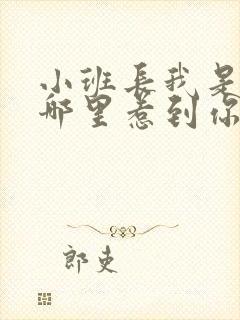 小班长我是
哪里惹到你
郎吏